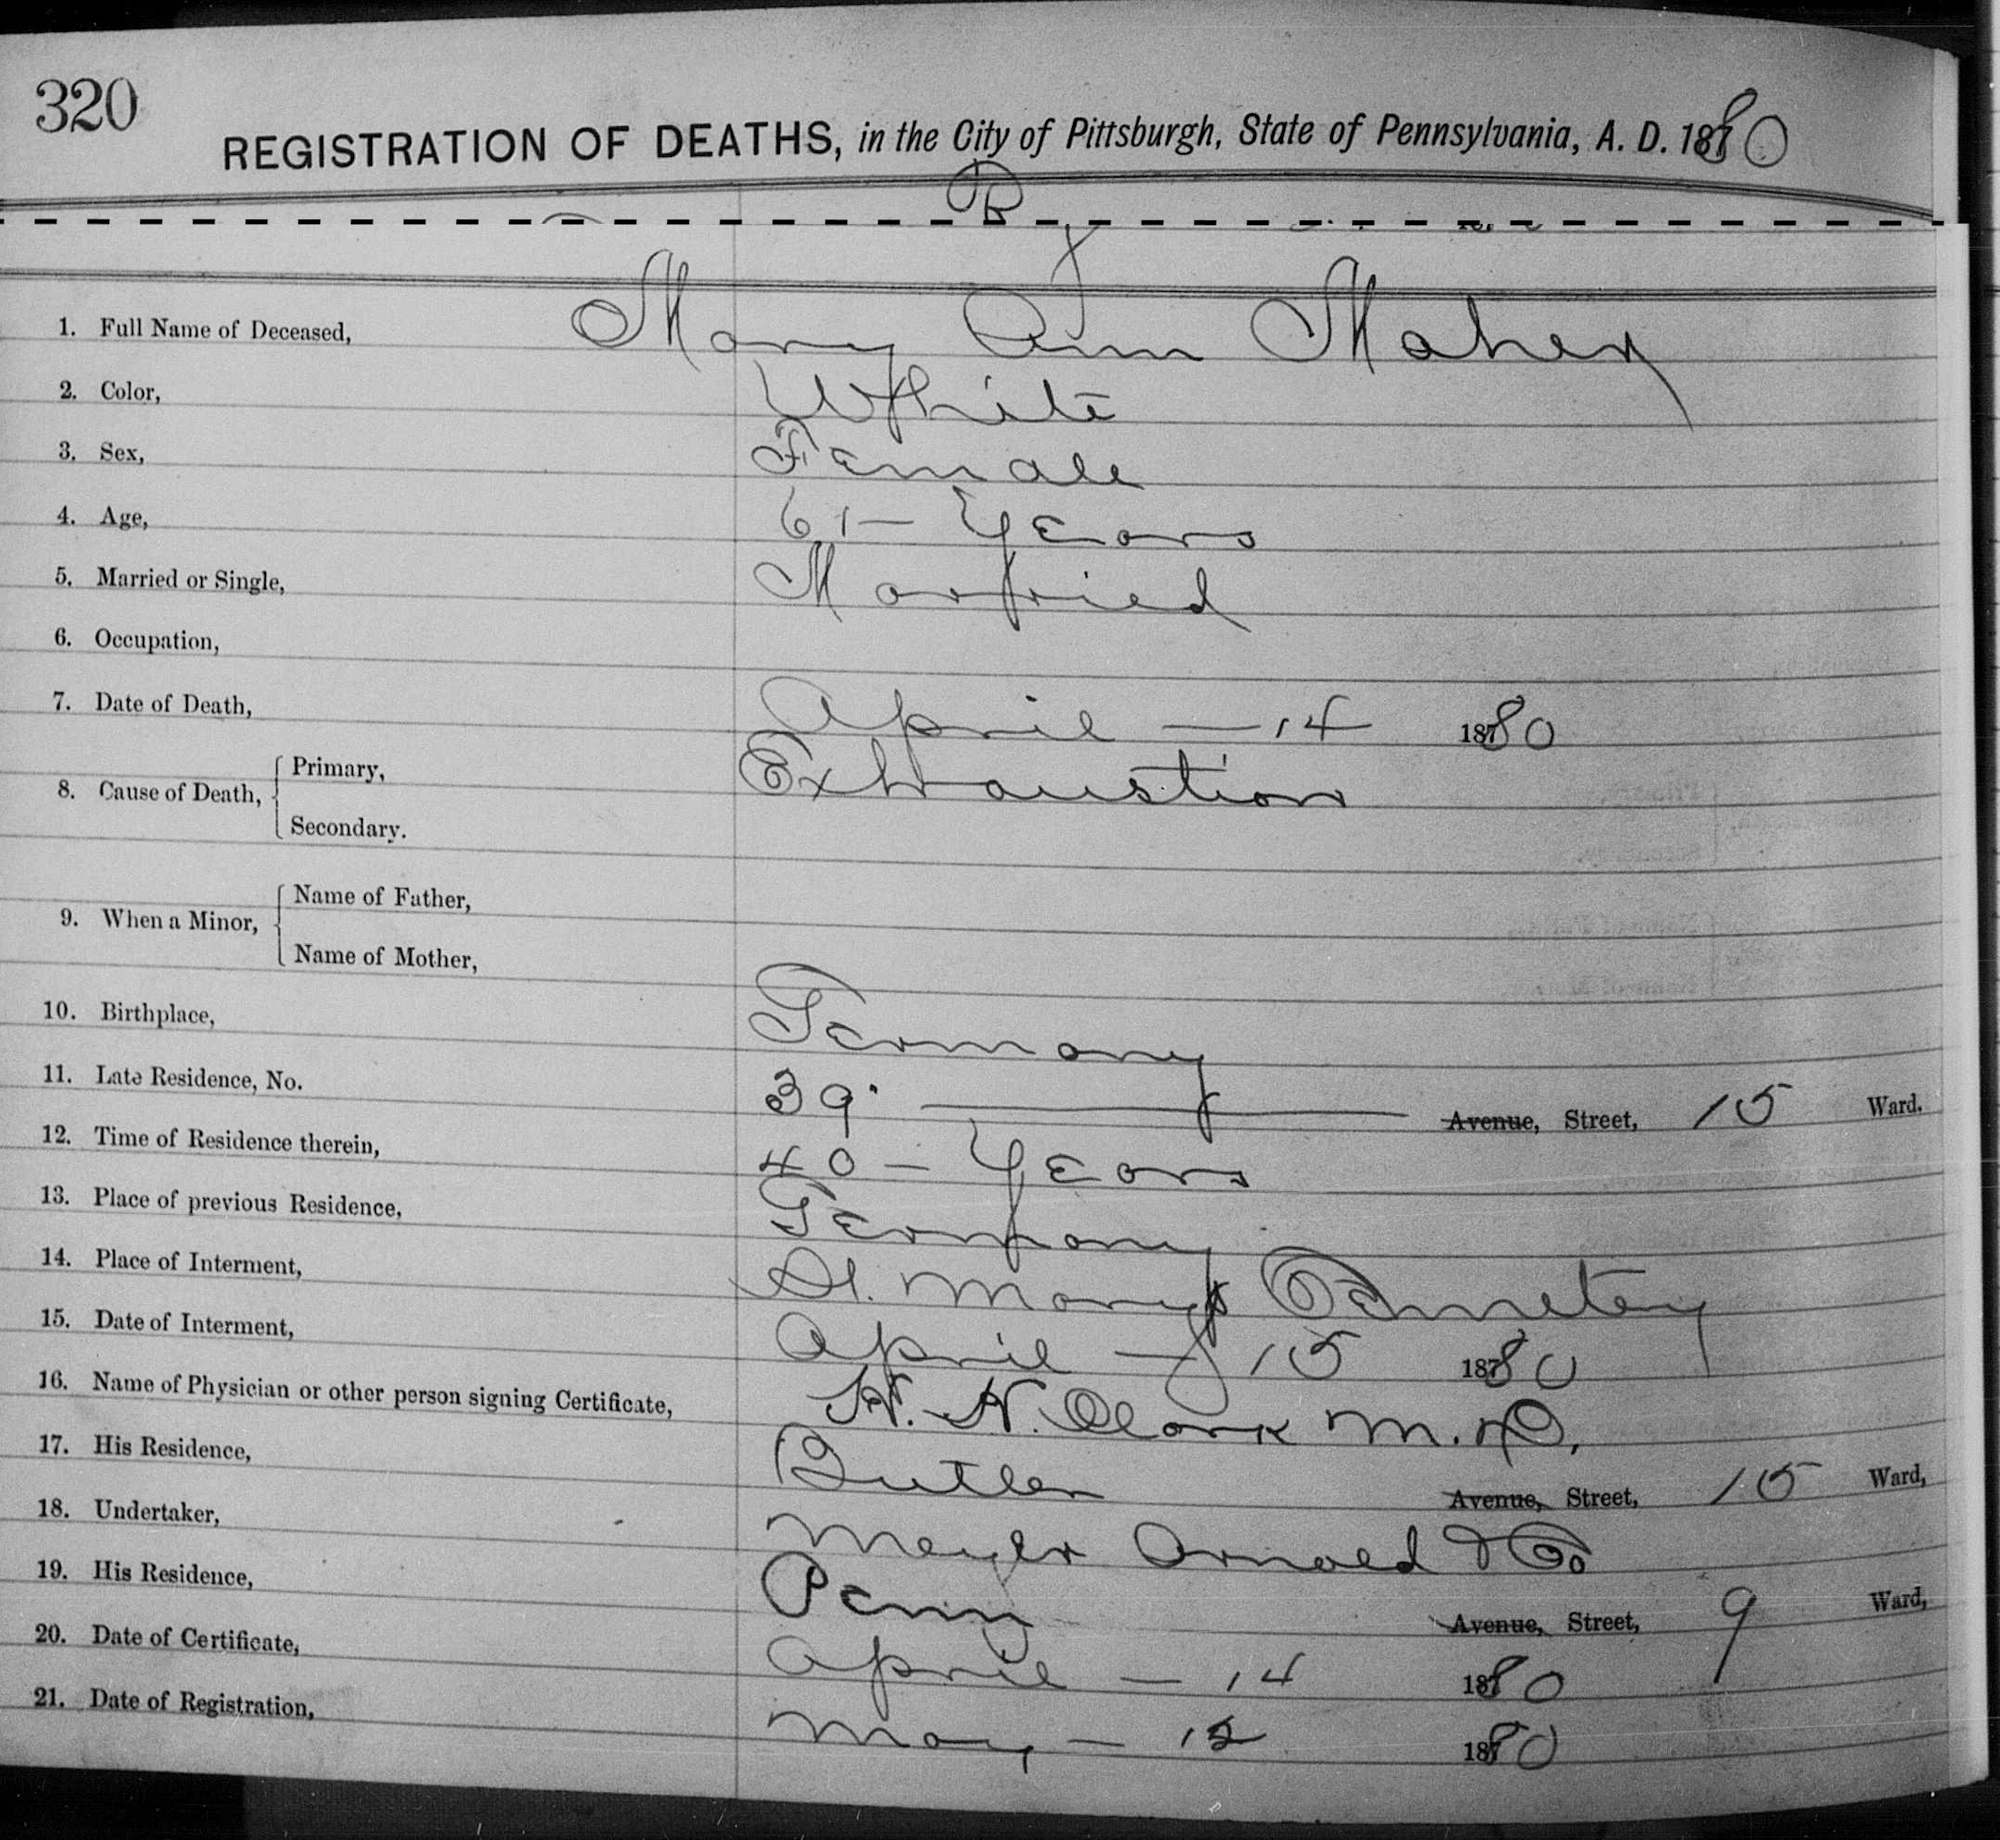 320
REGISTRATION OF DEATHS, in the City of Pittsburgh, State of Pennsylvania, A. D. 1880
1. Full Name of Deceased, Mary Ann Maher
2. Color, White
3. Sex, Female
4. Age, 61 — Years
5. Married or Single, Married
6. Occupation,
7. Date of Death, April — 14 1880
8. Cause of Death, Primary, Exhaustion
Secondary.
9. When a Minor, Name of Father,
Name of Mother,
10. Birthplace, Germany
11. Late Residence, No. 39. Avenue, Street, 15 Ward.
12. Time of Residence therein, 40 — Years
13. Place of previous Residence, Germany
14. Place of Interment, St. Marys Cemetery
15. Date of Interment, April — 15 1880
16. Name of Physician or other person signing Certificate, H. H. Clark M. D.
17. His Residence, Butler Avenue, Street, 15 Ward,
18. Undertaker, Meyer Arnold & Co
19. His Residence, Penn Avenue, Street, 9 Ward,
20. Date of Certificate, April — 14 1880
21. Date of Registration, May — 12 1880